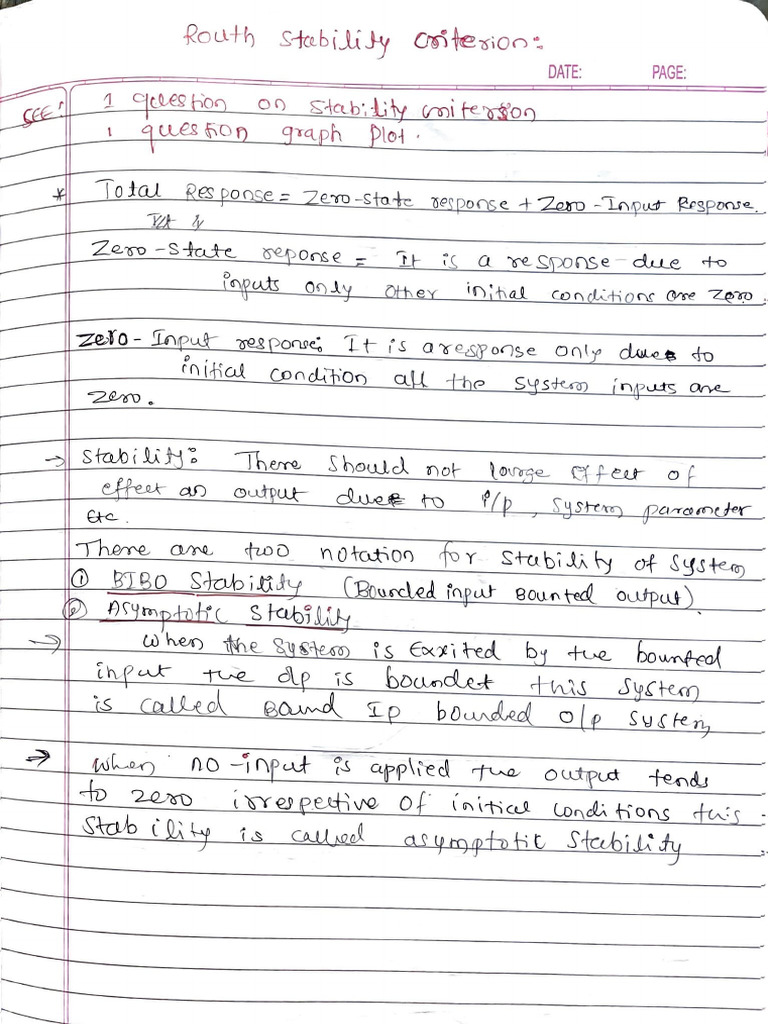 Routh Stability Criterion:
DATE: PAGE:
SEE! 1 question on Stability criterion
1 question graph plot.
* Total Response = Zero-state response + Zero-Input Response.
Zero-State reponse = It is a response due to
inputs only other initial conditions are zero.
Zero-Input response: It is a response only due to
initial condition all the system inputs are
zero.
→ Stability: There should not large effect of
effect on output due to i/p, system parameter
Etc.
There are two notation for stability of system
① BIBO Stability (Bounded input Bounted output).
② Asymptotic Stability
→ When the system is Exxited by the bounted
input the o/p is boundet this system
is called Bound Ip bounded o/p system
→ When no-input is applied the output tends
to zero irrespective of initial conditions this
Stability is called asymptotic Stability